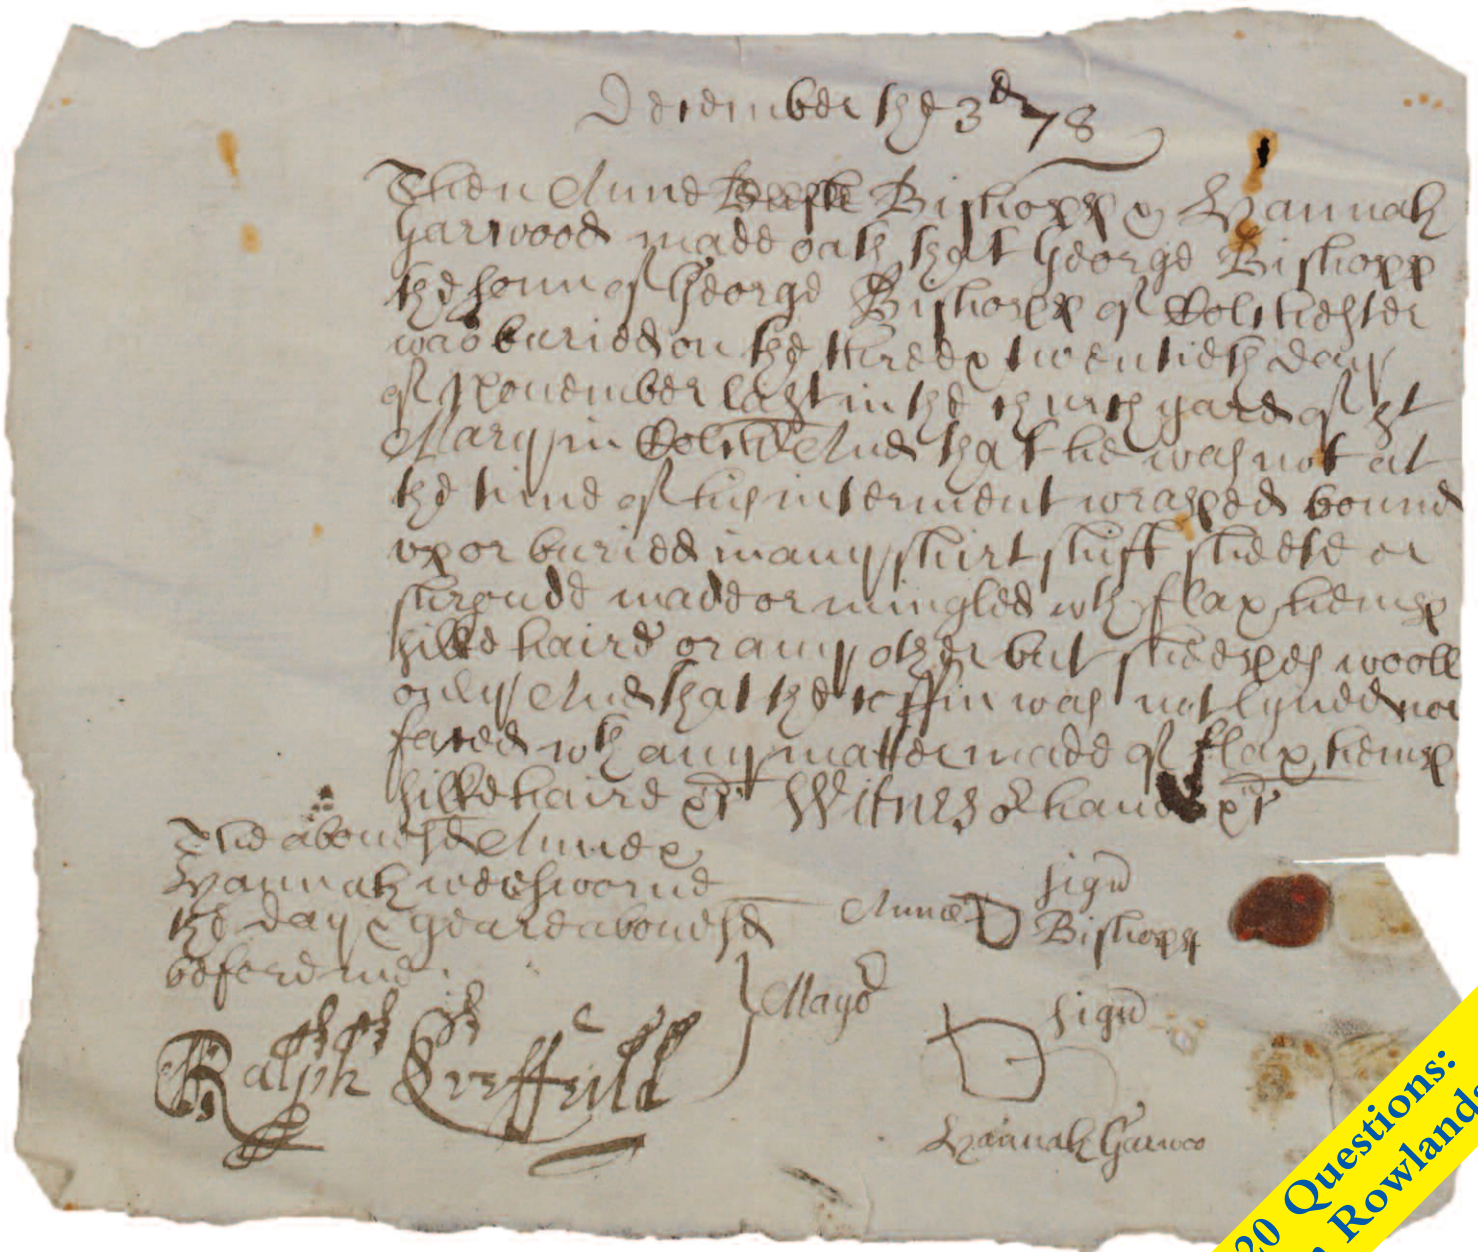 December the 3d 78
Then Anne Bishopp & Hannah
Garwood made oath that George Bishopp
the sonn of George Bishopp of Colchester
was buried on the three & twentieth day
of November last in the church yard of St
Mary in Colch And that he was not at
the time of his interment wraped bound
vp or buried in any shirt shift sheete or
shroude made or mingled wth flax hemp
silke haire or any other but sheepes wooll
only And that the coffin was not lyned nor
faced wth any matter made of flax, hemp
silke haire &c Witnes or hands &c
The aboue sd Anne &
Hannah were sworne
the day & yeare aboue sd
before me
Ralph Creffeild
Mayor
Anne Bishopp
signu
signu
Hannah Garwoo
20 Questions:
Rowlands